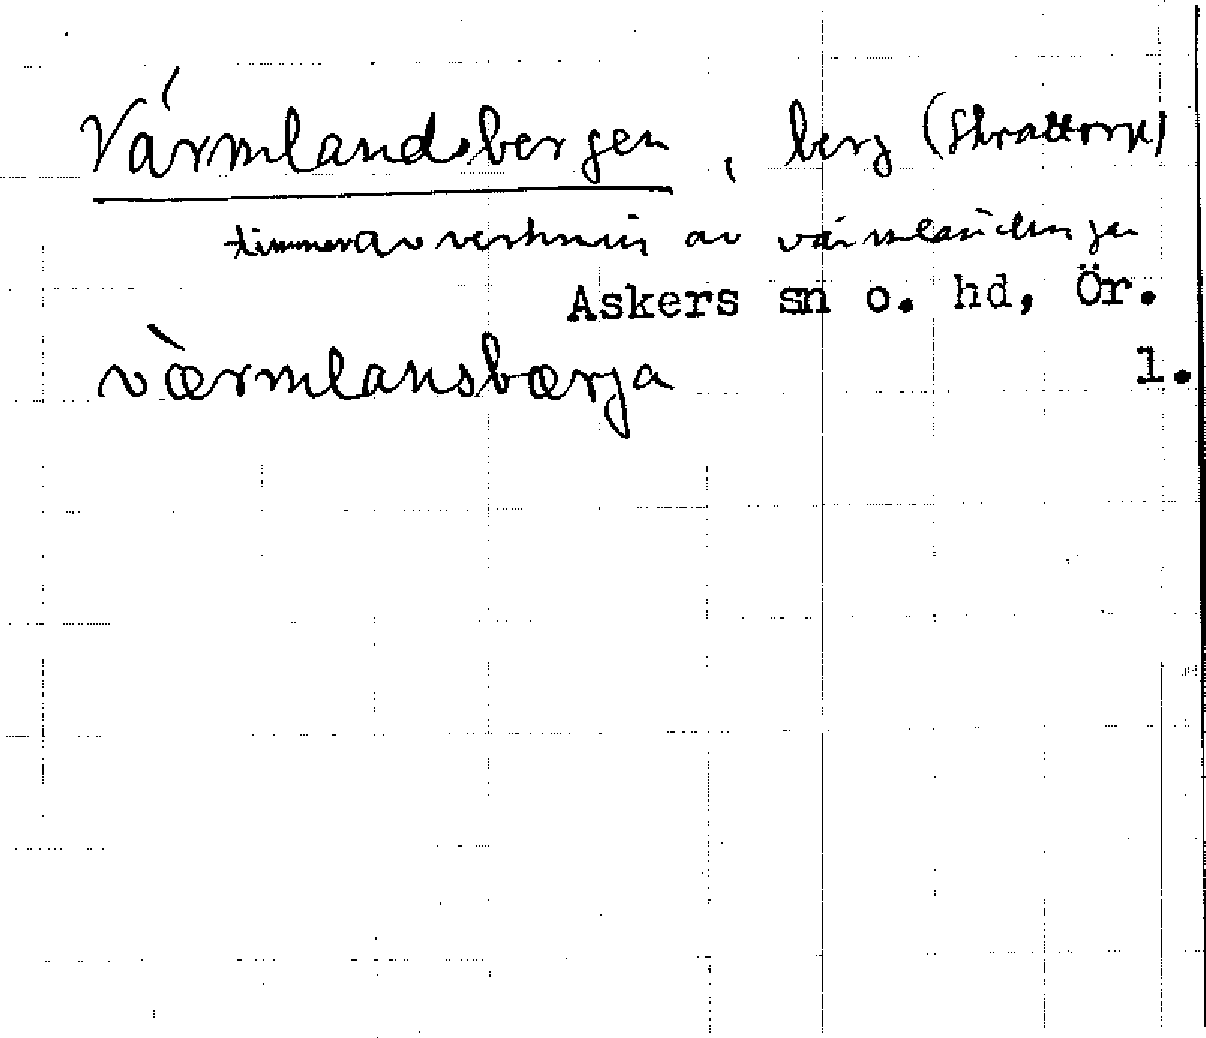 Värmlandsbergen, berg (Skrattorp)
timmeravverkning av värmlänningar
Askers sn o. hd, Ör.
værmlansbærja 1.